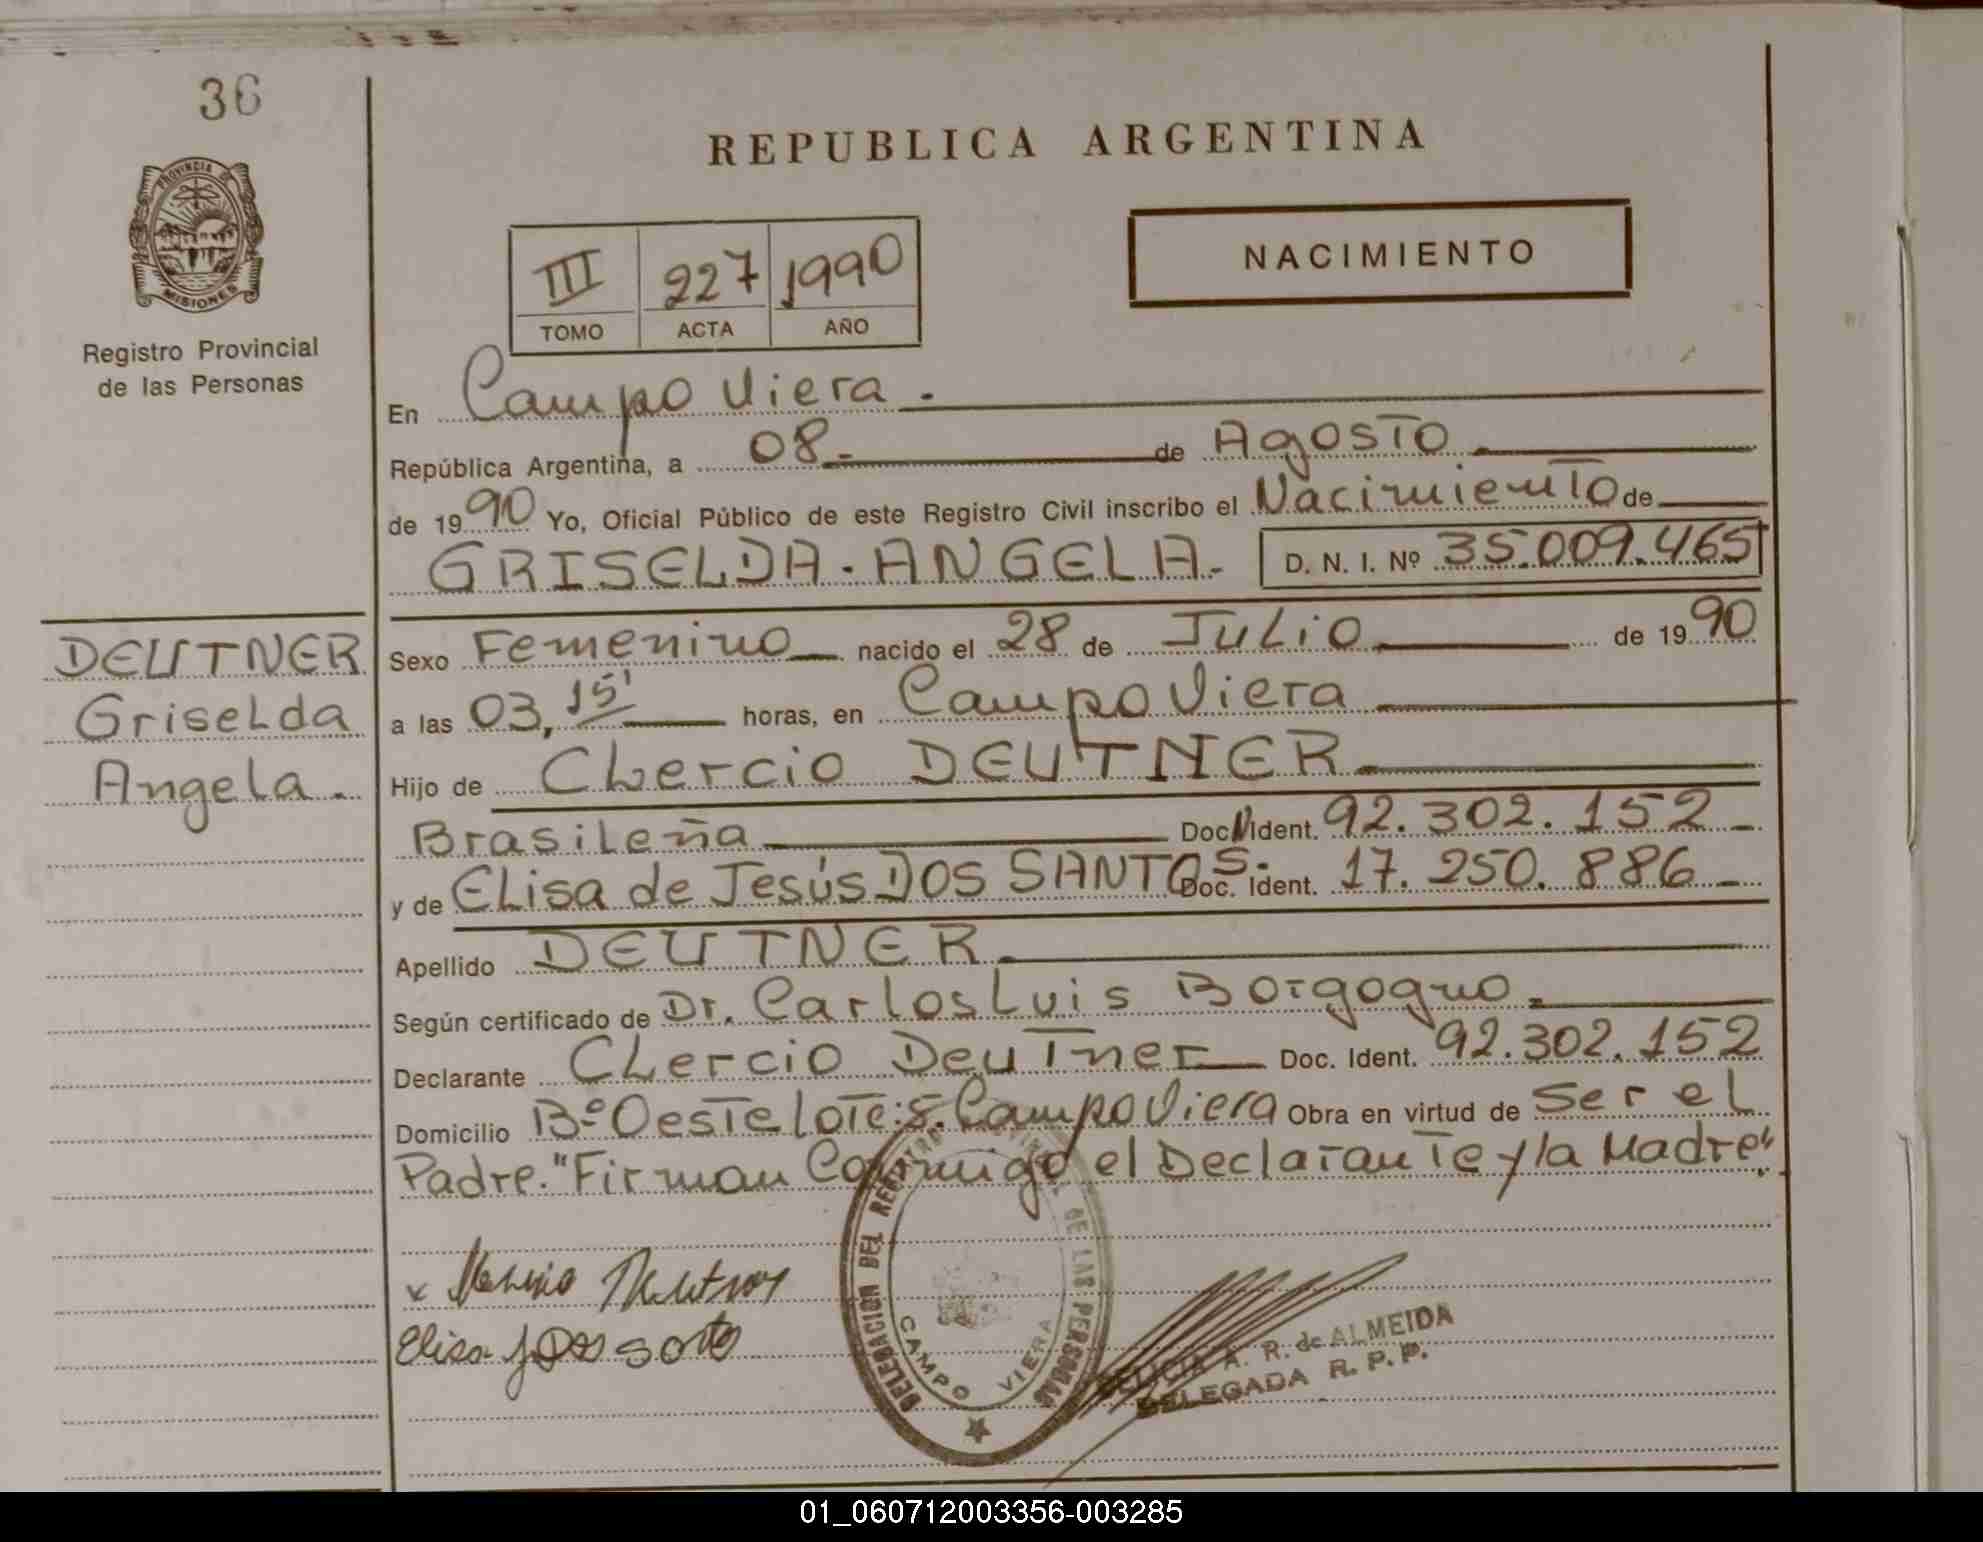 36
PROVINCIA DE
MISIONES
Registro Provincial
de las Personas
REPUBLICA ARGENTINA
NACIMIENTO
III 227 1990
TOMO ACTA AÑO
En Campo Viera.
República Argentina, a 08.- de Agosto
de 1990 Yo, Oficial Público de este Registro Civil inscribo el Nacimiento de
GRISELDA. ANGELA. D. N. I. Nº 35.009.465
DEUTNER
Griselda
Angela.
Sexo Femenino nacido el 28 de Julio de 1990
a las 03,15' horas, en Campo Viera
Hijo de Clercio DEUTNER
Brasileña Doc. Ident. 92.302.152
y de Elisa de Jesús DOS SANTOS. Doc. Ident. 17.250.886
Apellido DEUTNER
Según certificado de Dr. Carlos Luis Borgogno
Declarante Clercio Deutner Doc. Ident. 92.302.152
Domicilio Bº Oeste lote:5. Campo Viera Obra en virtud de Ser el
Padre. "Firman Conmigo el Declarante y la Madre".
DELEGACION DEL REGISTRO PROVINCIAL DE LAS PERSONAS
CAMPO VIERA
A. R. de ALMEIDA
DELEGADA R. P. P.
01_060712003356-003285